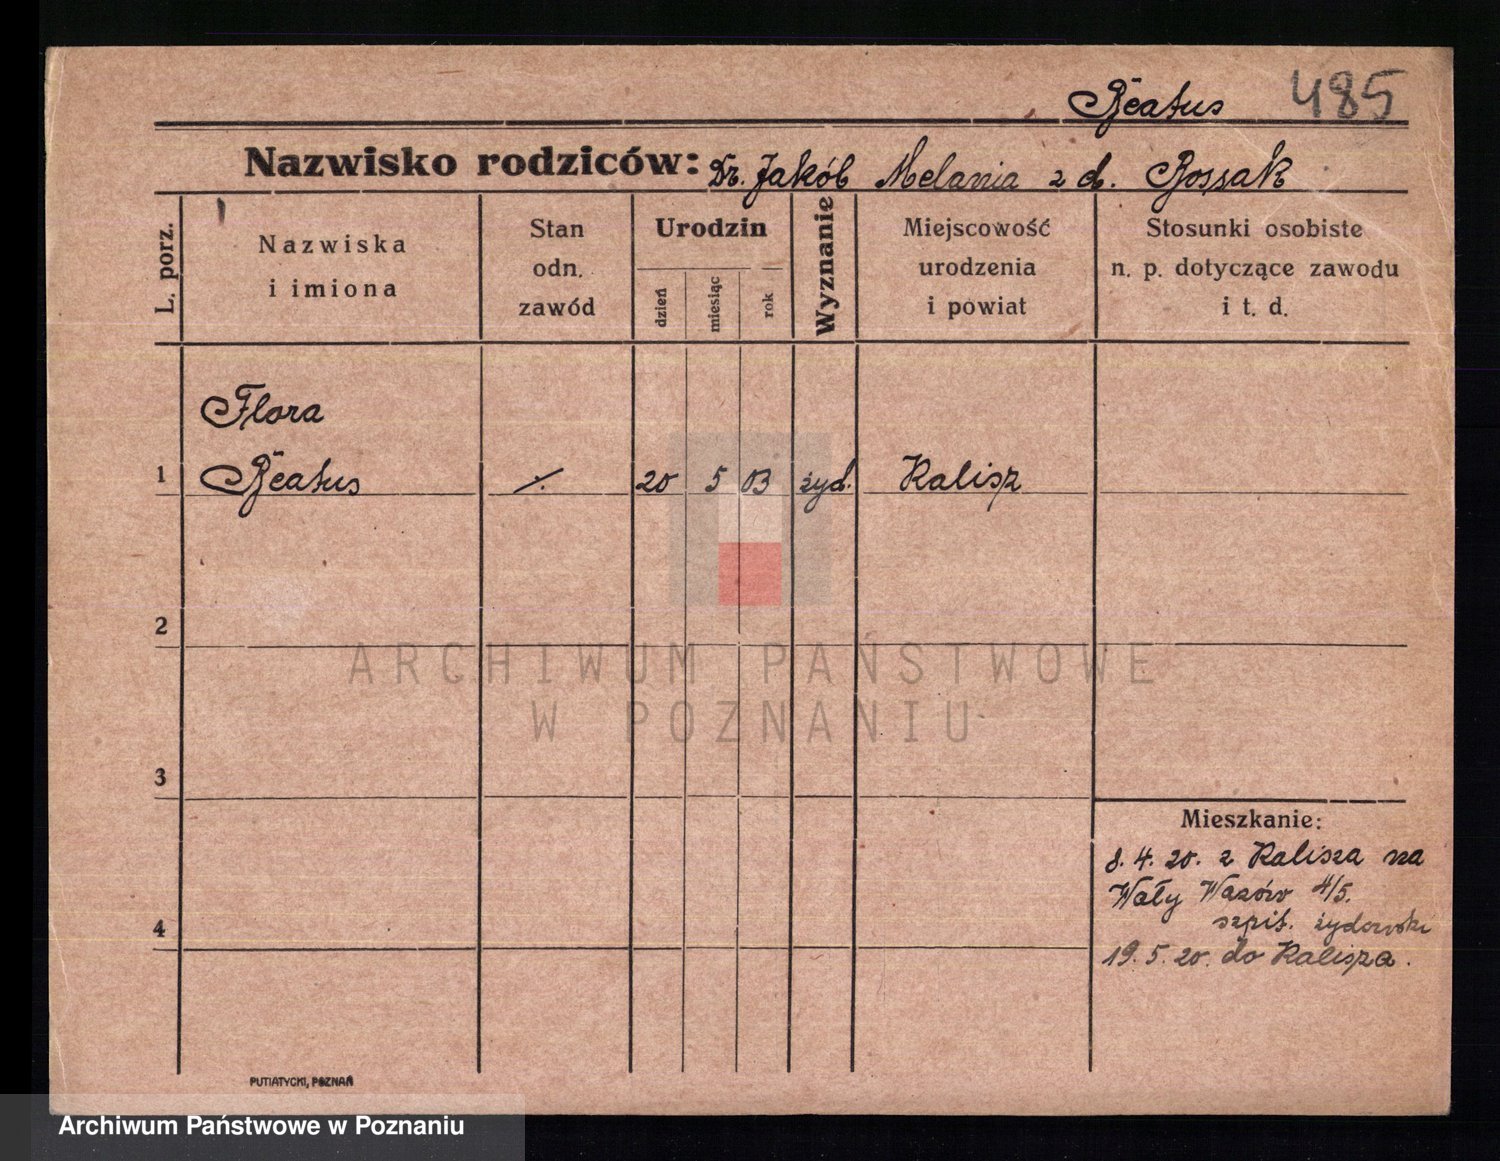 Beatus 485
Nazwisko rodziców: Dr. Jakób Melania z d. Rossak
L. porz.
Nazwiska
i imiona
Stan
odn.
zawód
Urodzin
dzień
miesiąc
rok
Wyznanie
Miejscowość
urodzenia
i powiat
Stosunki osobiste
n. p. dotyczące zawodu
i t. d.
Flora
1 Beatus ./. 20 5 03 żyd. Kalisz
2
ARCHIWUM PAŃSTWOWE
W POZNANIU
3
Mieszkanie:
8. 4. 20. z Kalisza na
Wały Wazów 4/5.
szpit. żydowski
4
19. 5. 20. do Kalisza.
PUTIATYCKI, POZNAŃ
Archiwum Państwowe w Poznaniu